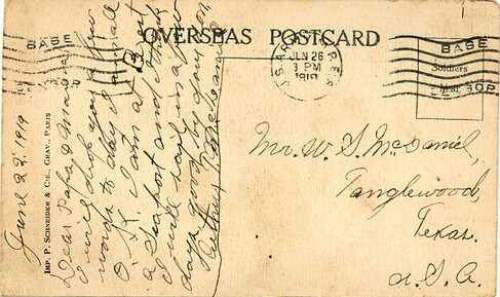 OVERSEAS POSTCARD
BASE
U.S. ARMY
JUN 26
3 PM
1919
BASE
Soldiers
Mail
IMP. P. SCHNEIDER & CIE, GRAV., PARIS
June 22, 1919
Dear Papa & Mama
I will drop you a few
words to day. I am all
O. K. I am at Brest
a seaport and I think
I will sail in a few
days. good by from
Mr. W. S. McDaniel,
Tanglewood,
Texas.
U.S.A.